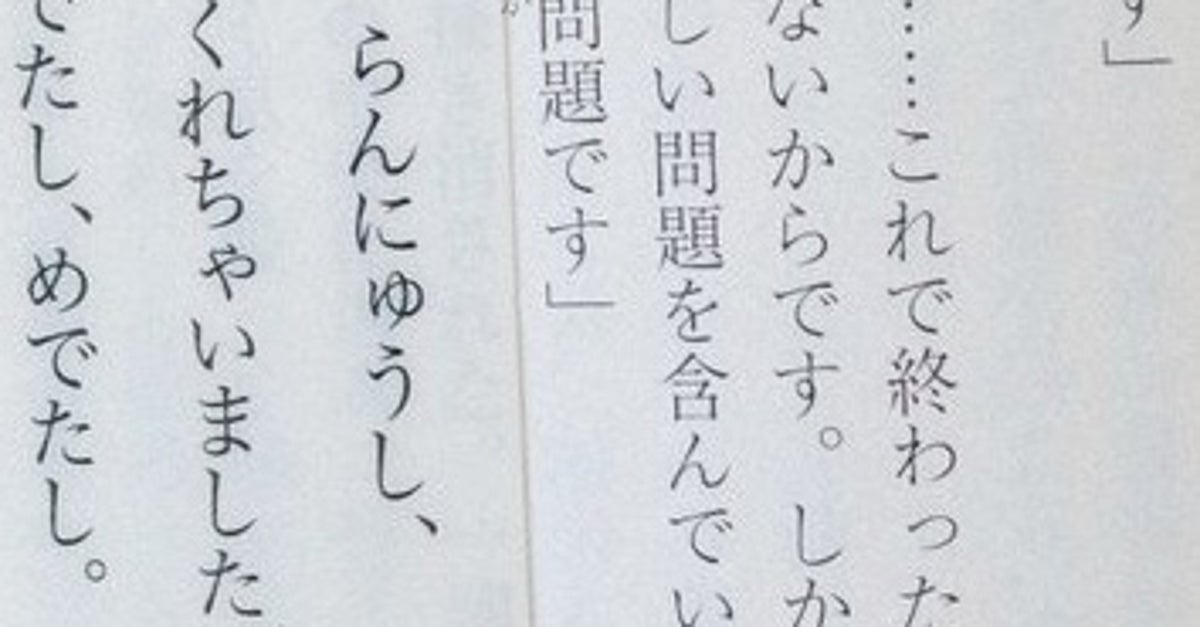 す」
……これで終わった
ないからです。しか
しい問題を含んでい
問題です」
らんにゅうし、
くれちゃいました
でたし、めでたし。